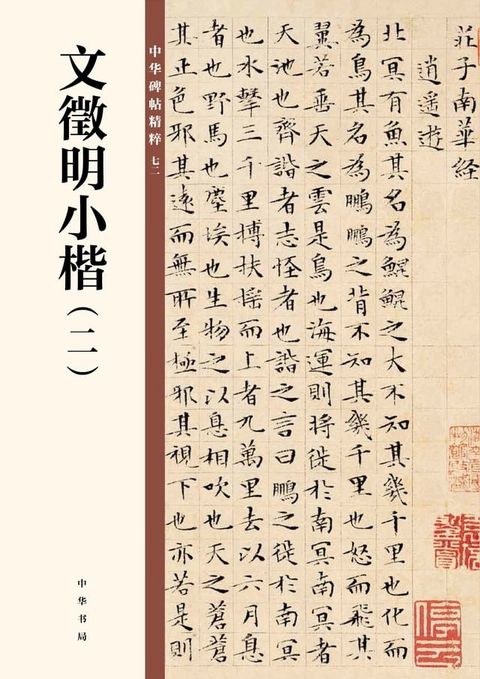 文徵明小楷(二)
中华碑帖精粹 七二
中华书局
莊子南華経
逍遥遊
北冥有魚其名為鯤鯤之大不知其幾千里也化而
為鳥其名為鵬鵬之背不知其幾千里也怒而飛其
翼若垂天之雲是鳥也海運則將徙於南冥南冥者
天池也齊諧者志怪者也諧之言曰鵬之徙於南冥
也水擊三千里搏扶摇而上者九萬里去以六月息
者也野馬也塵埃也生物之以息相吹也天之蒼蒼
其正色邪其遠而無所至極邪其視下也亦若是則